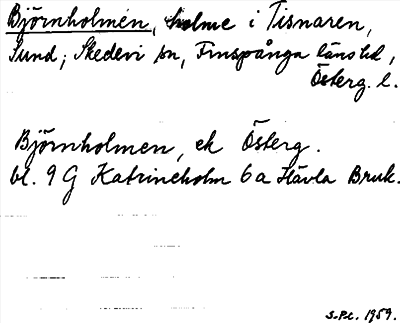 Björnholmen, holme i Tisnaren,
Sund; Skedevi sn, Finspånga läns hd,
Österg. l.
Björnholmen, ek Österg.
bl. 9 G Katrineholm 6a Hävla Bruk.
1959.